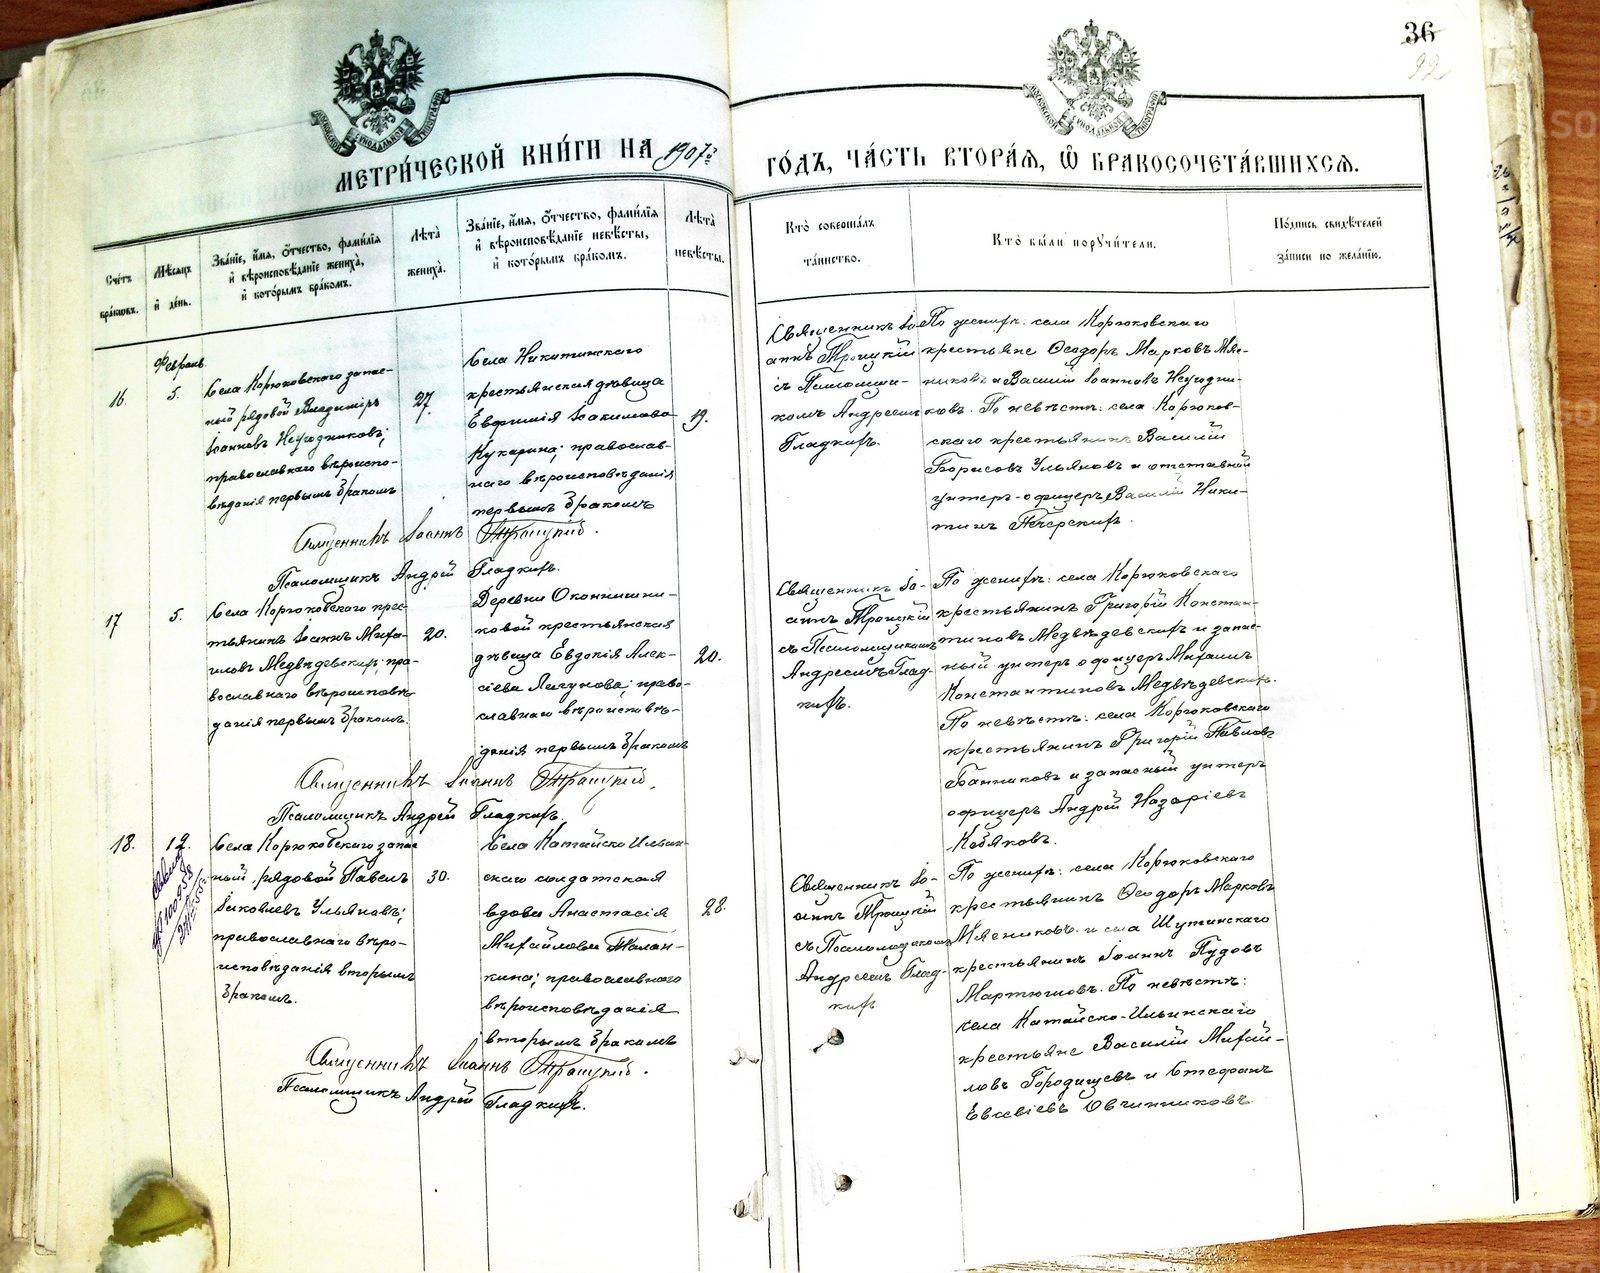 36
92
МЕТРИ́ЧЕСКОЙ КНИ́ГИ НА 1907й
ГО́ДЪ, ЧА́СТЬ ВТОРА́Я, Ѿ БРАКОСОЧЕТА́ВШИХСЯ.
Сче́тъ бра́ковъ.
Мѣ́сяцъ и҆ де́нь.
Зва́нїе, и҆́мя, ѻ҆́тчество, фами́лїя
и҆ вѣроисповѣ́данїе жениха̀,
и҆ кото́рымъ бра́комъ.
Лѣ́та жениха̀.
Зва́нїе, и҆́мя, ѻ҆́тчество, фами́лїя
и҆ вѣроисповѣ́данїе невѣ́сты,
и҆ кото́рымъ бра́комъ.
Лѣ́та невѣ́сты.
Кто̀ соверша́лъ
та́инство.
Кто̀ бы́ли порꙋчи́тели.
По́дпись свидѣ́телей
за́писи по жела́нїю.
Февраль
16.
5.
Села Корюковскаго запас-
ный рядовой Владиміръ
Іоанновъ Неугодниковъ;
православнаго вѣроиспо-
вѣданія первымъ бракомъ
27.
Села Никитинскаго
крестьянская дѣвица
Евфимія Іоакимова
Кукарина; православ-
наго вѣроисповѣданія
первымъ бракомъ
19.
Священникъ Іо-
аннъ Троицкій
съ Псаломщи-
комъ Андреемъ
Гладкихъ.
По женихѣ: села Корюковскаго
крестьяне Ѳеодоръ Марковъ Мяс-
никовъ и Василій Іоанновъ Неугодни-
ковъ. По невѣстѣ: села Корюков-
скаго крестьянинъ Василій
Борисовъ Ульяновъ и отставной
унтеръ-офицеръ Василій Ники-
тинъ Печерскихъ.
Священникъ Іоаннъ Троицкій.
Псаломщикъ Андрей Гладкихъ.
17
5.
Села Корюковскаго крес-
тьянинъ Іоаннъ Миха-
иловъ Медвѣдевскихъ; пра-
вославнаго вѣроисповѣ-
данія первымъ бракомъ.
20.
Деревни Оконишни-
ковой крестьянская
дѣвица Евдокія Алек-
сіева Лагунова; право-
славнаго вѣроисповѣ-
данія первымъ бракомъ
20.
Священникъ Іо-
аннъ Троицкій
съ Псаломщикомъ
Андреемъ Глад-
кихъ.
По женихѣ: села Корюковскаго
крестьянинъ Григорій Констан-
тиновъ Медвѣдевскихъ и запас-
ный унтеръ офицеръ Михаилъ
Константиновъ Медвѣдевскихъ.
По невѣстѣ: села Корюковскаго
крестьянинъ Григорій Павловъ
Банниковъ и запасный унтеръ
офицеръ Андрей Назаріевъ
Кобяковъ.
Священникъ Іоаннъ Троицкій.
Псаломщикъ Андрей Гладкихъ.
18.
12.
Села Корюковскаго запас
ный рядовой Павелъ
Іаковлевъ Ульяновъ;
православнаго вѣро-
исповѣданія вторымъ
бракомъ.
30.
Села Катайско-Ильин-
скаго солдатская
вдова Анастасія
Михайлова Талан-
кина; православнаго
вѣроисповѣданія
вторымъ бракомъ
28.
Священникъ Іо-
аннъ Троицкій
съ Псаломщикомъ
Андреемъ Глад-
кихъ
По женихѣ: села Корюковскаго
крестьянинъ Ѳеодоръ Марковъ
Мясниковъ и села Шутинскаго
крестьянинъ Іоаннъ Пудовъ
Мартюшовъ. По невѣстѣ:
села Катайско-Ильинскаго
крестьяне Василій Михай-
ловъ Городищевъ и Стефанъ
Евсевіевъ Овчинниковъ.
Священникъ Іоаннъ Троицкій.
Псаломщикъ Андрей Гладкихъ.